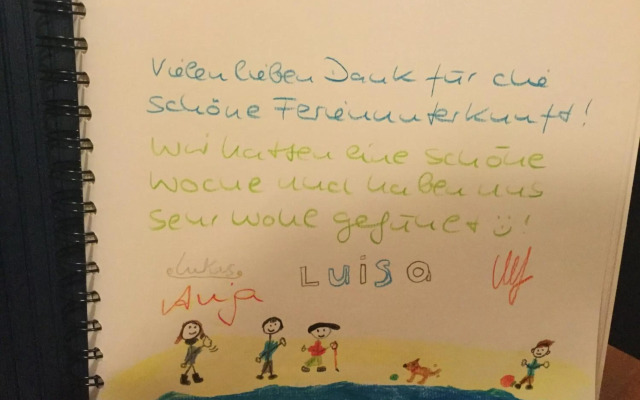 Vielen lieben Dank für die
schöne Ferienunterkunft!
Wir hatten eine schöne
Woche und haben uns
sehr wohl gefühlt ☺!
Lukas
LUISA
Ulf
Anja